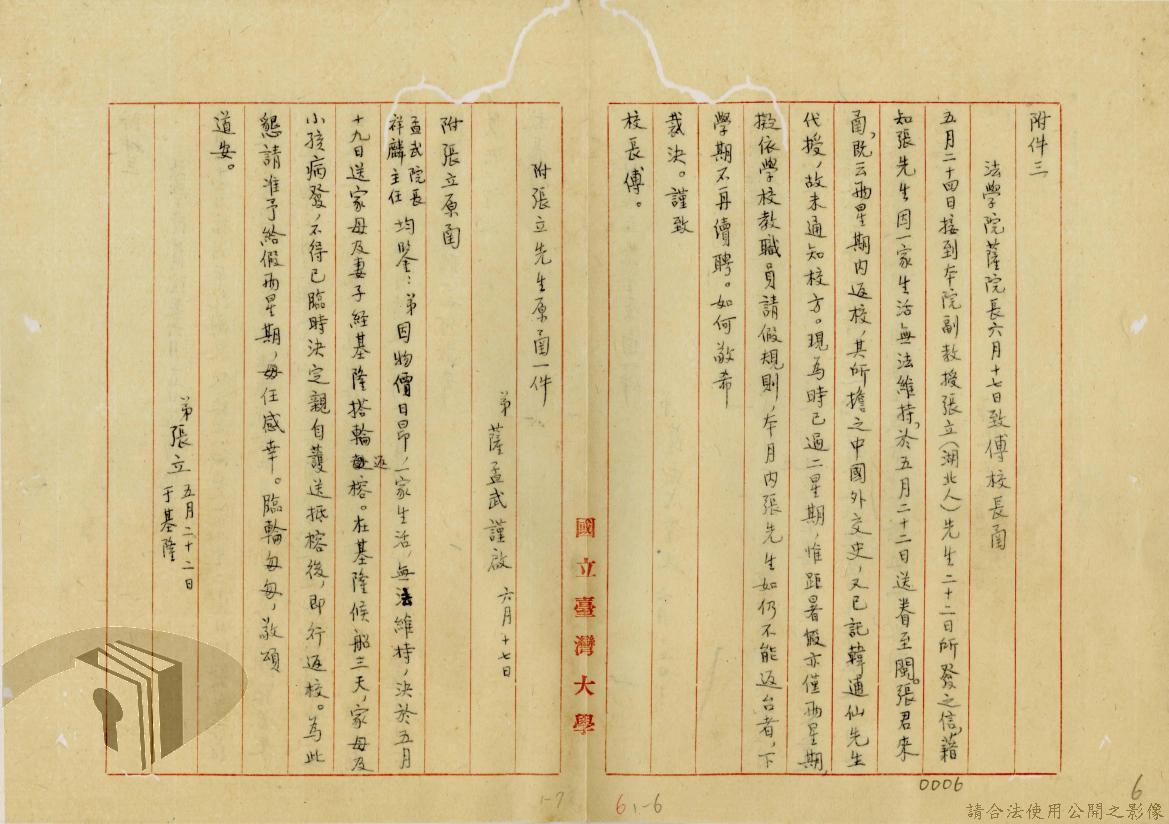 附件三
法學院薩院長六月十七日致傅校長函
五月二十四日接到本院副教授張立(湖北人)先生二十二日所發之信,藉
知張先生因一家生活無法維持,於五月二十二日送眷至閩。張君來
函,既云兩星期內返校,其所擔之中國外交史,又已託韓逋仙先生
代授,故未通知校方。現為時已過二星期,惟距暑假亦僅兩星期,
擬依學校教職員請假規則,本月內張先生如仍不能返台者,下
學期不再續聘。如何敬希
裁決。謹致
校長傅。
附張立先生原函一件
弟 薩孟武謹啟 六月十七日
附張立原函
孟武院長
祥麟主任 均鑒:弟因物價日昂,一家生活,無法維持,決於五月
十九日送家母及妻子經基隆搭輪返榕。在基隆候船三天,家母及
小孩病發,不得已臨時決定親自護送抵榕後,即行返校。為此
懇請准予給假兩星期,毋任感幸。臨輪匆匆,敬頌
道安。
弟張立 五月二十二日
于基隆
國立臺灣大學
0006
6
1-7
6 1-6
請合法使用公開之影像